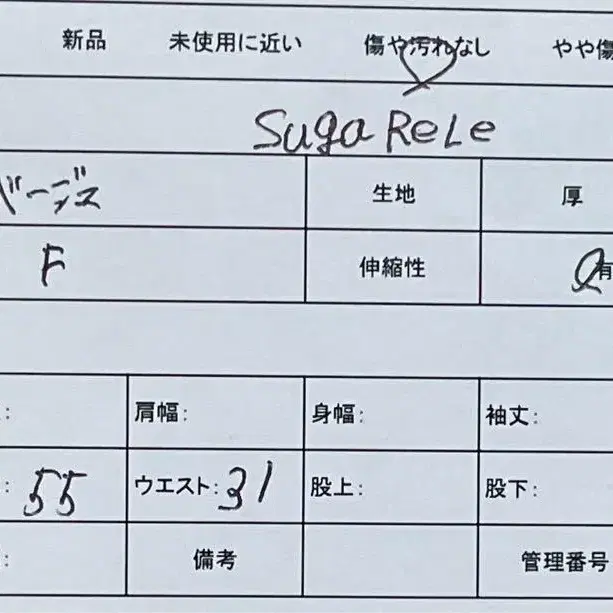 新品 未使用に近い 傷や汚れなし やや傷
Suga ReLe
ベージュ 生地 厚
F 伸縮性 有
: 肩幅: 身幅: 袖丈:
: 55 ウエスト: 31 股上: 股下:
: 備考 管理番号